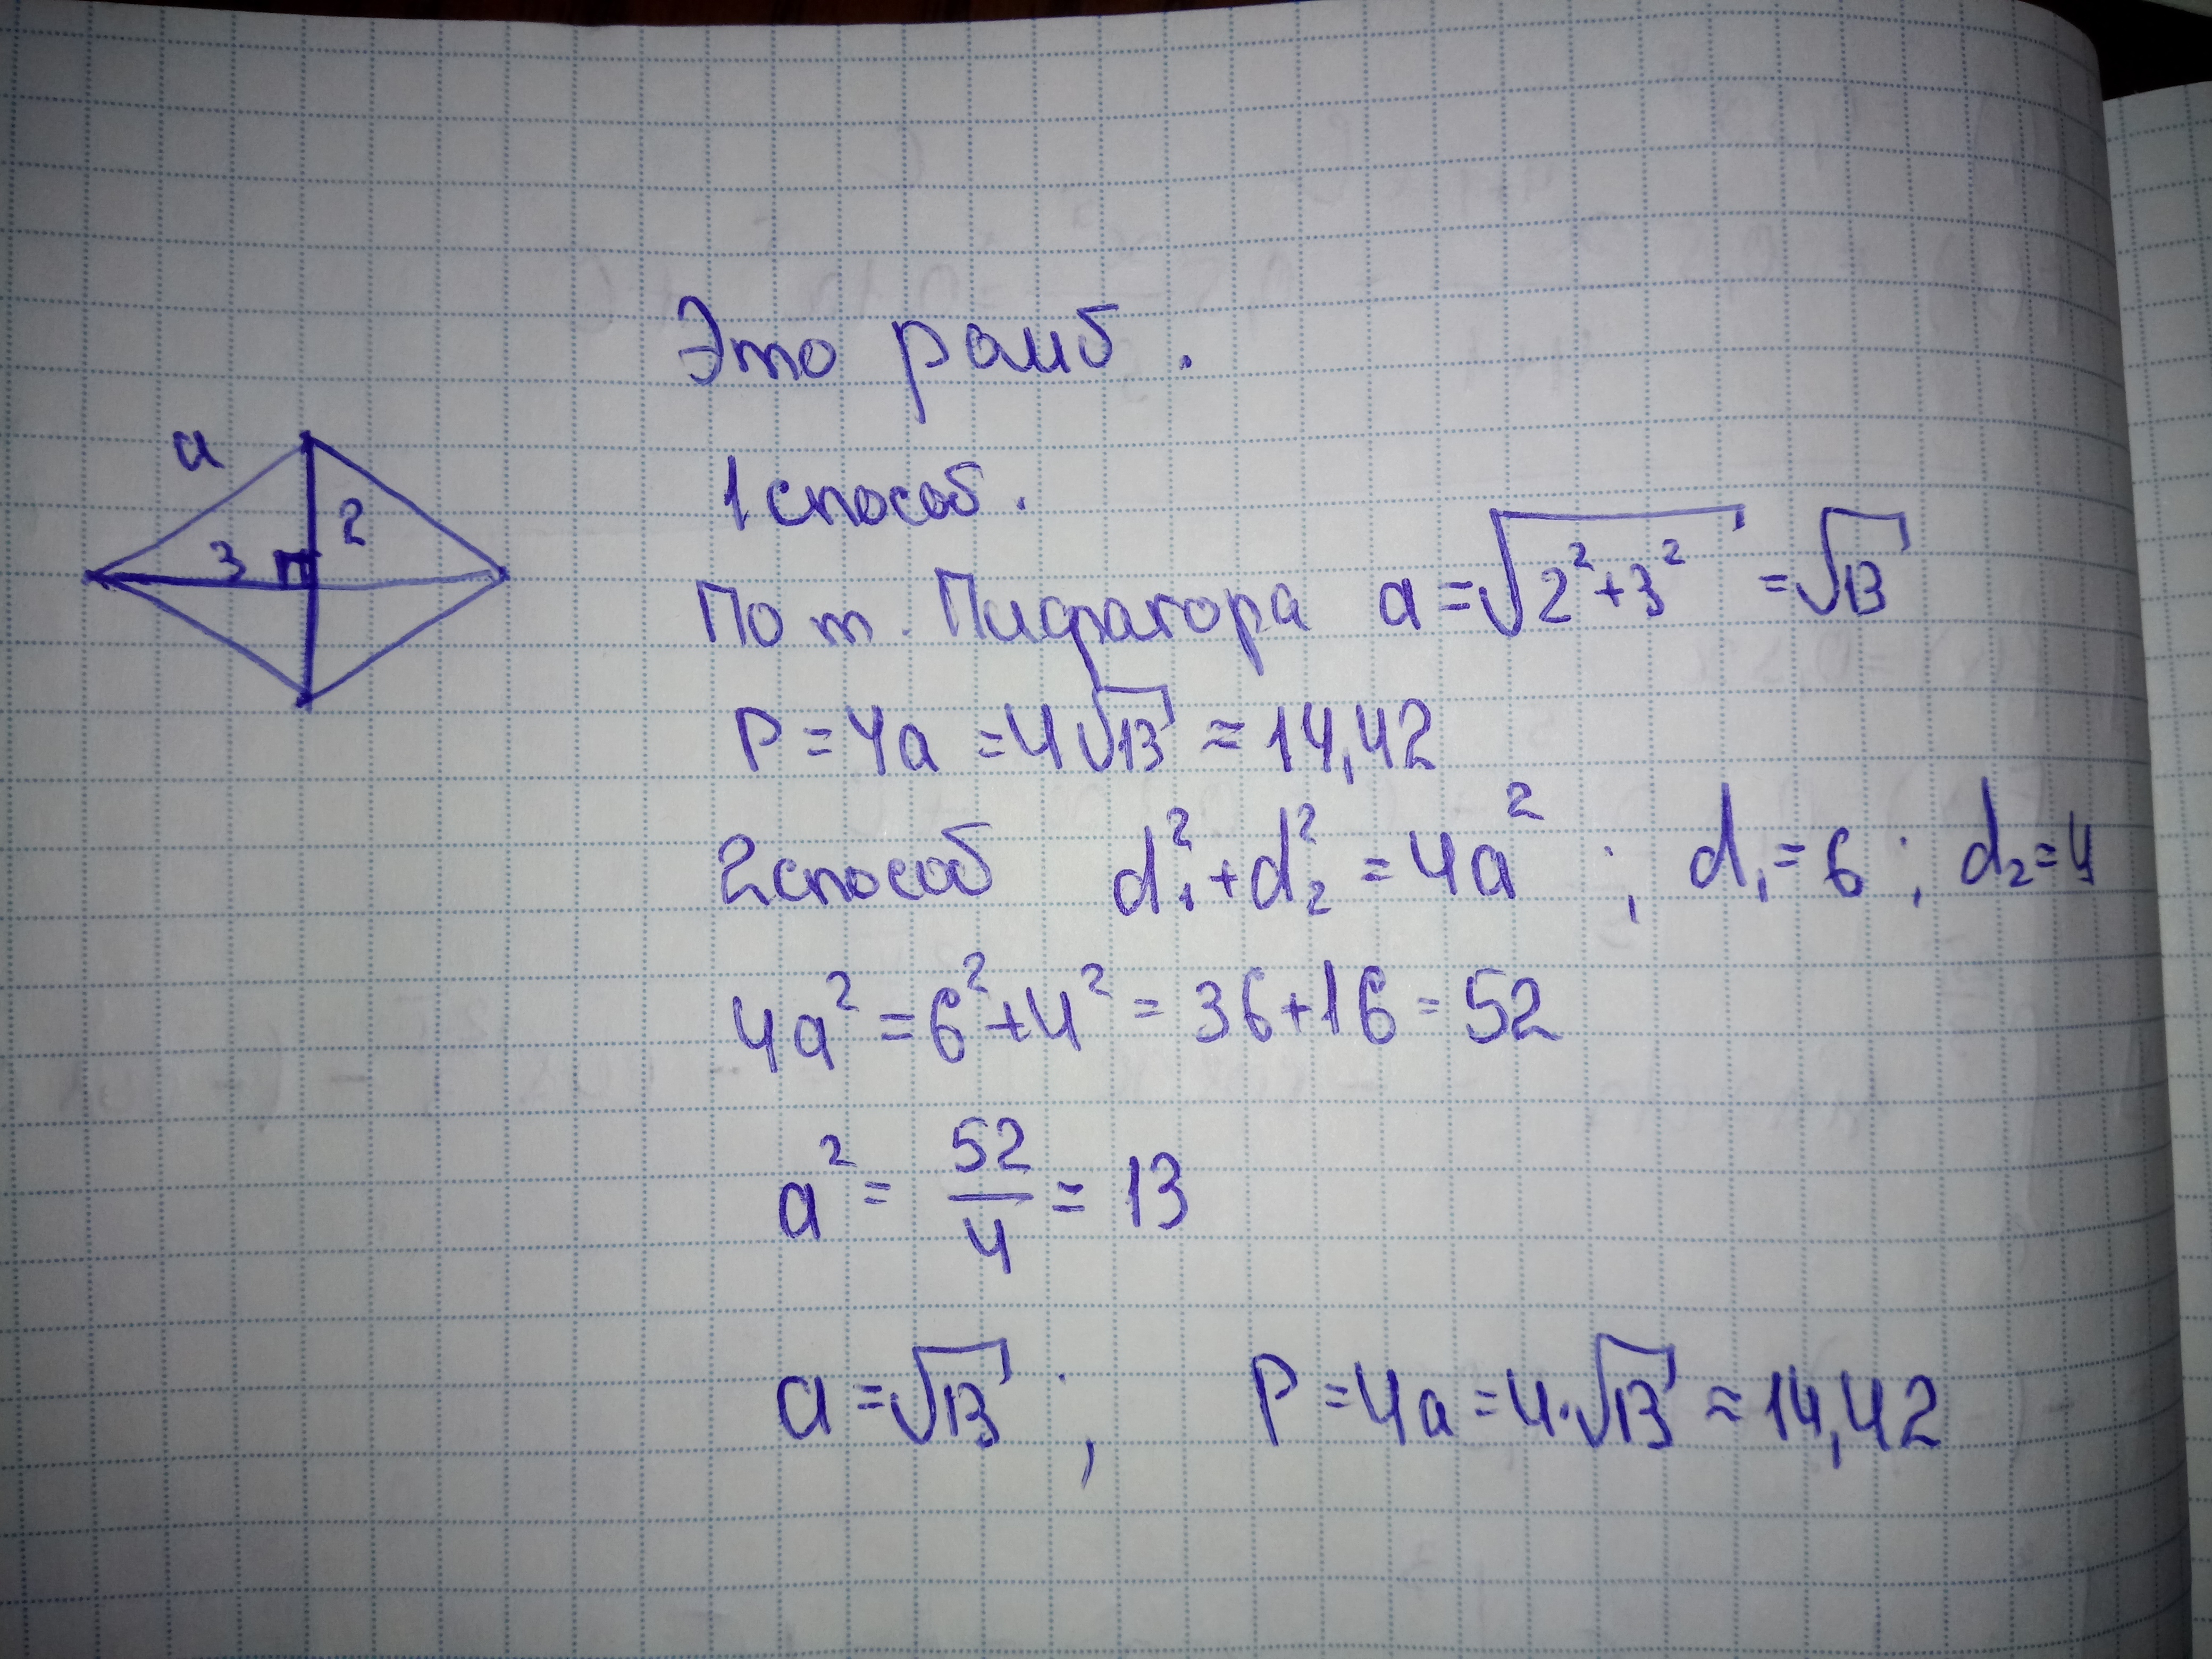 Это ромб.
a
3
2
1 способ.
По т. Пифагора a = √(2² + 3²) = √13
P = 4a = 4√13 ≈ 14,42
2 способ d₁² + d₂² = 4a² ; d₁ = 6 ; d₂ = 4
4a² = 6² + 4² = 36 + 16 = 52
a² = 52/4 = 13
a = √13 ; P = 4a = 4·√13 ≈ 14,42